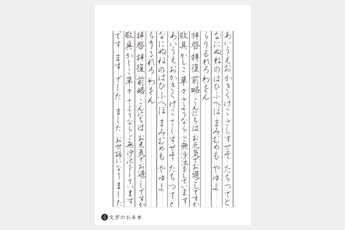 あいうえおかきくけこさしすせそたちつてと
なにぬねのはひふへほまみむめもやゆよ
らりるれろわをん
拝啓 拝復 前略 こんにちは お元気でお過ごしですか
敬具 かしこ 草々 さようなら ご無沙汰をしています
あいうえおかきくけこさしすせそたちつてと
なにぬねのはひふへほまみむめもやゆよ
らりるれろわをん
拝啓 拝復 前略 こんにちは お元気でお過ごしですか
敬具 かしこ 草々 さようなら ご無沙汰をしています
です ます でした ました お世話になりました
4 文字のお手本